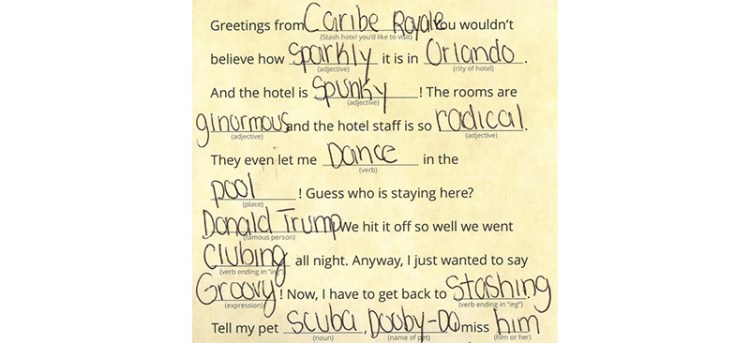 Greetings from Caribe Royale You wouldn't
(Stash hotel you'd like to visit)
believe how Sparkly it is in Orlando.
(adjective) (city of hotel)
And the hotel is Spunky! The rooms are
(adjective)
ginormous and the hotel staff is so radical.
(adjective) (adjective)
They even let me Dance in the
(verb)
pool! Guess who is staying here?
(place)
Donald Trump We hit it off so well we went
(famous person)
Clubing all night. Anyway, I just wanted to say
(verb ending in "ing")
Groovy! Now, I have to get back to Stashing
(expression) (verb ending in "ing")
Tell my pet scuba, Dooby-Do miss him
(noun) (name of pet) (him or her)